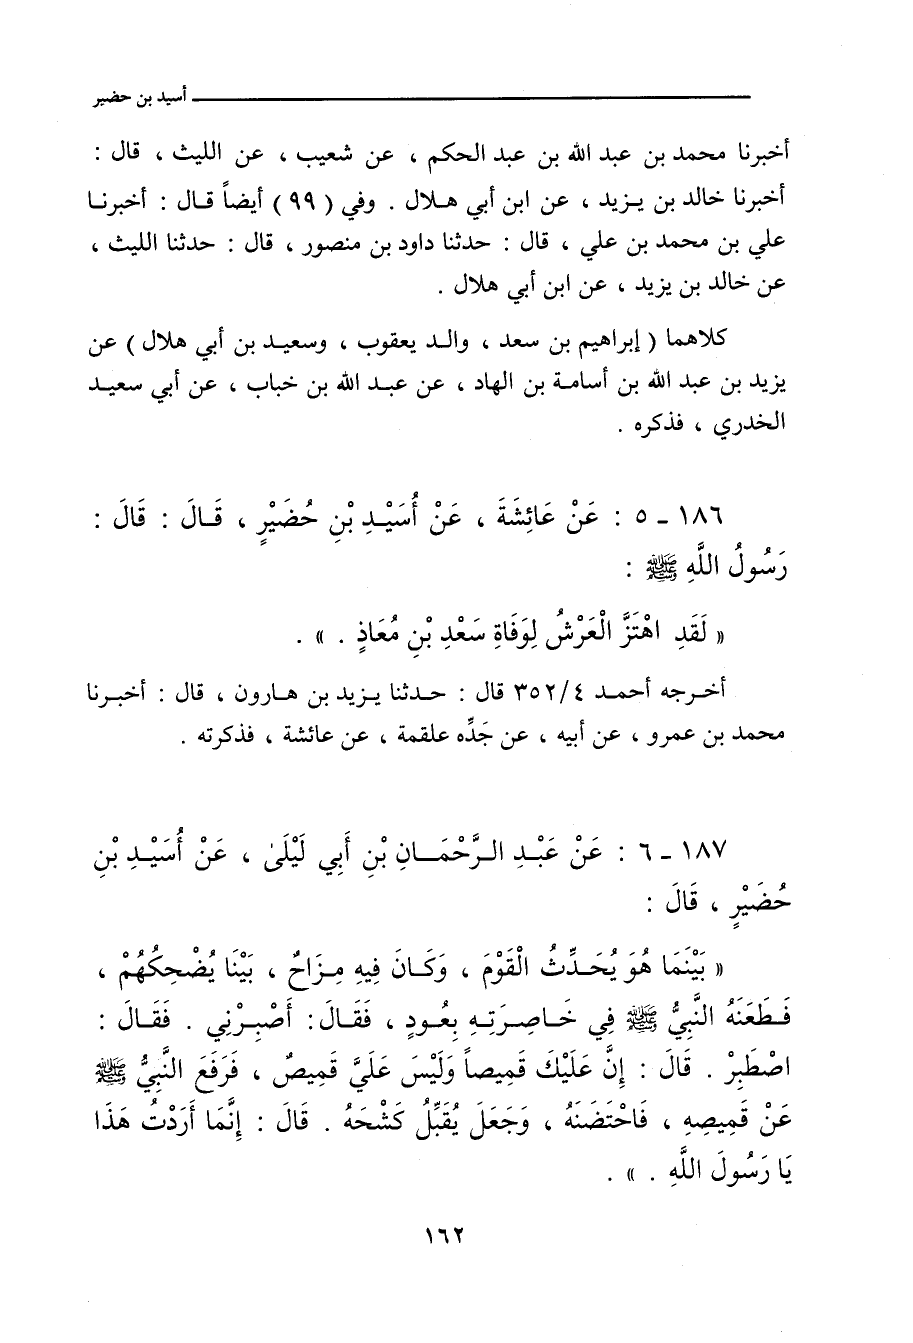 أسيد بن حضير
أخبرنا محمد بن عبد الله بن عبد الحكم ، عن شعيب ، عن الليث ، قال :
أخبرنا خالد بن يزيد ، عن ابن أبي هلال . وفي ( ٩٩ ) أيضاً قال : أخبرنا
علي بن محمد بن علي ، قال : حدثنا داود بن منصور ، قال : حدثنا الليث ،
عن خالد بن يزيد ، عن ابن أبي هلال .
كلاهما ( إبراهيم بن سعد ، والد يعقوب ، وسعيد بن أبي هلال ) عن
يزيد بن عبد الله بن أسامة بن الهاد ، عن عبد الله بن خباب ، عن أبي سعيد
الخدري ، فذكره .
١٨٦ ـ ٥ : عَنْ عَائِشَةَ ، عَنْ أُسَيْدِ بْنِ حُضَيْرٍ ، قَالَ : قَالَ :
رَسُولُ اللَّهِ ﷺ :
« لَقَدِ اهْتَزَّ الْعَرْشُ لِوَفَاةِ سَعْدِ بْنِ مُعَاذٍ . » .
أخرجه أحمد ٣٥٢/٤ قال : حدثنا يزيد بن هارون ، قال : أخبرنا
محمد بن عمرو ، عن أبيه ، عن جَدِّه علقمة ، عن عائشة ، فذكرته .
١٨٧ ـ ٦ : عَنْ عَبْدِ الرَّحْمَانِ بْنِ أَبِي لَيْلَىٰ ، عَنْ أُسَيْدِ بْنِ
حُضَيْرٍ ، قَالَ :
« بَيْنَمَا هُوَ يُحَدِّثُ الْقَوْمَ ، وَكَانَ فِيهِ مِزَاحٌ ، بَيْنَا يُضْحِكُهُمْ ،
فَطَعَنَهُ النَّبِيُّ ﷺ فِي خَاصِرَتِهِ بِعُودٍ ، فَقَالَ : أَصْبِرْنِي . فَقَالَ :
اصْطَبِرْ . قَالَ : إِنَّ عَلَيْكَ قَمِيصاً وَلَيْسَ عَلَيَّ قَمِيصٌ ، فَرَفَعَ النَّبِيُّ ﷺ
عَنْ قَمِيصِهِ ، فَاحْتَضَنَهُ ، وَجَعَلَ يُقَبِّلُ كَشْحَهُ . قَالَ : إِنَّمَا أَرَدْتُ هَذَا
يَا رَسُولَ اللَّهِ . » .
١٦٢